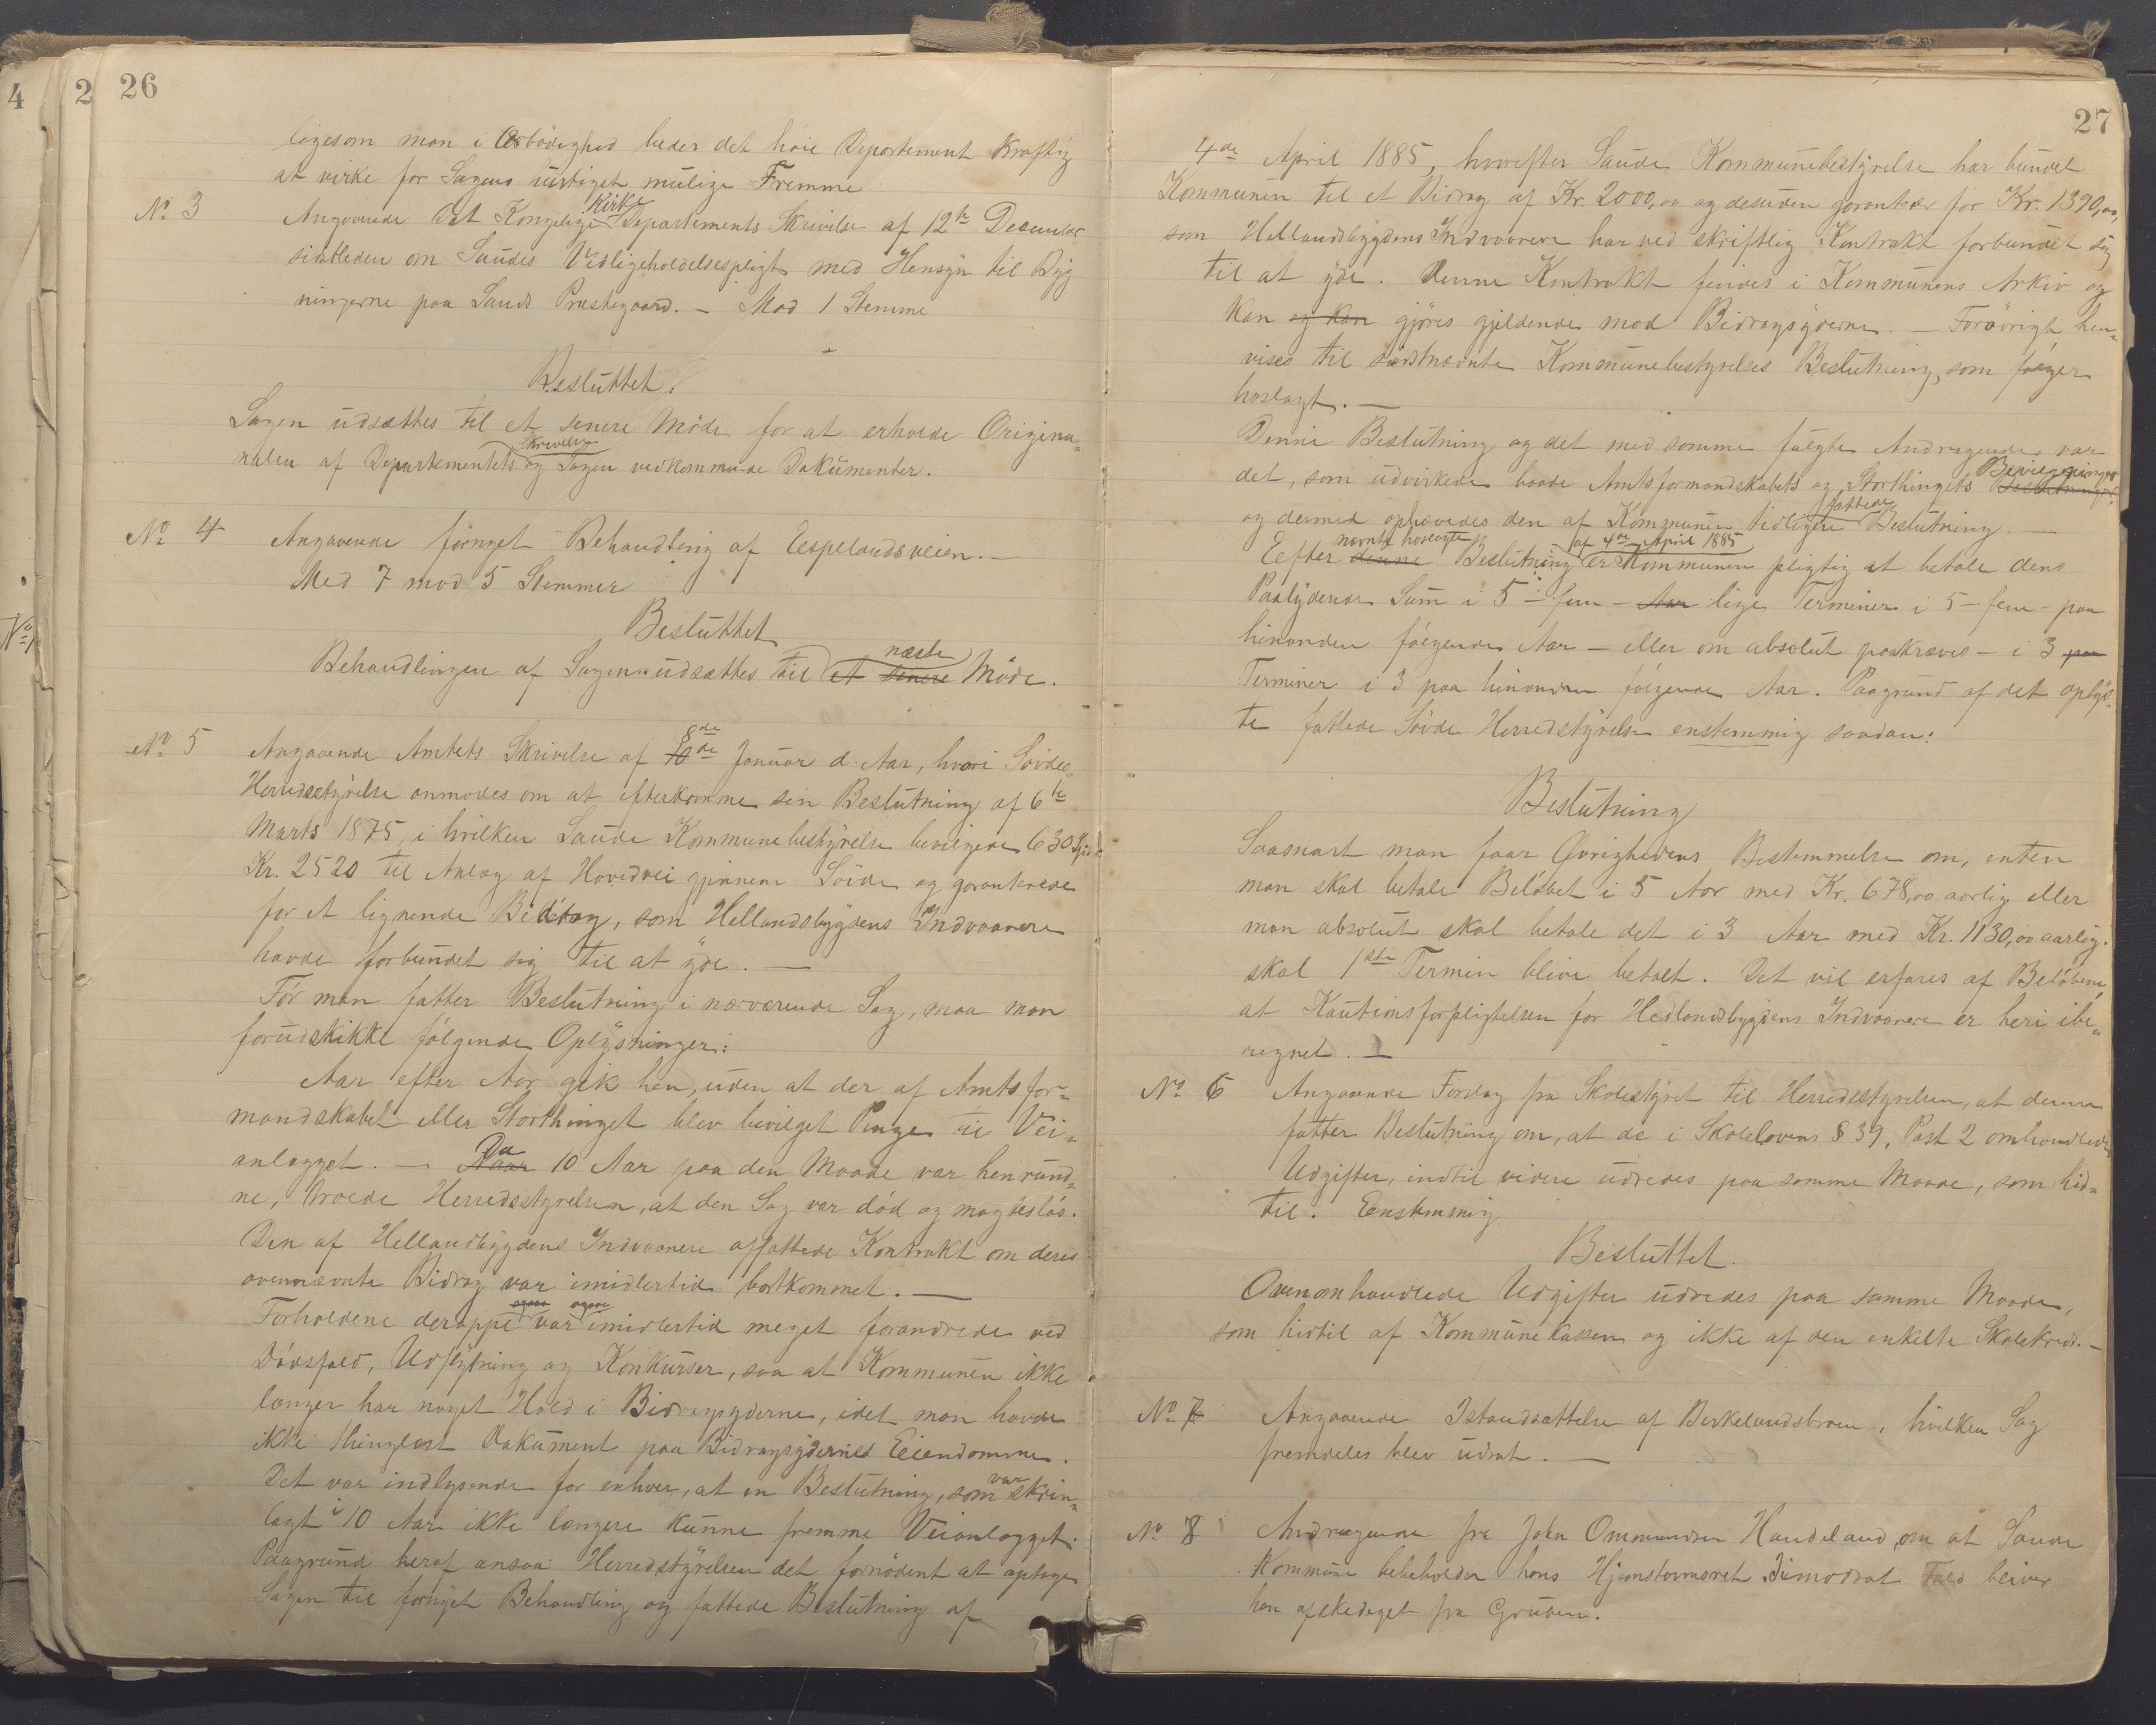 26
ligesom man i Ærbødighed beder det høie Departement kraftig
at virke for Sagens hurtigst mulige Fremme
No 3 Angaaende Det Kongelige Kirke Departements Skrivelse af 12te December
sidstleden om Saudes Vedligeholdelsespligt med Hensyn til Byg
ningerne paa Sands Præstegaard. – Mod 1 Stemme
Besluttet:
Sagen udsættes til et senere Møde for at erholde Origina-
nalen af Departementets Skrivelse og Sagen vedkommende Dokumenter.
No 4 Angaaende fornyet Behandling af Espelandsveien. –
Med 7 mod 5 Stemmer
Besluttet
Behandlingen af Sagen udsættes til et senere næste Møde.
No 5 Angaaende Amtets Skrivelse af 10de 8de Januar d. Aar, hvori Søvdes
Herredsstyrelse anmodes om at efterkomme sin Beslutning af 6te
Marts 1875, i hvilken Saude Kommunebestyrelse bevilgede 630 Spd
Kr. 2520 til Anlæg af Hovedvei gjennem Søvde og garanterede
for et lignende Bidrag, som Hellandsbygdens Indvaanere
havde forbundet sig til at yde. –
Før man fatter Beslutning i nærværende Sag, maa man
forudskikke følgende Oplysninger:
Aar efter Aar gik hen, uden at der af Amtsfor-
mandskabet eller Storthinget blev bevilget Penge til Vei-
anlægget. – Naar Da 10 Aar paa den Maade var henrund-
ne, troede Herredsstyrelsen, at den Sag var død og magtesløs.
Den af Hellandbygdens Indvaanere affattede Kontrakt om deres
ovennævnte Bidrag var imidlertid bortkommet. –
Forholdene deroppe ogsaa var ogsaa imidlertid meget forandrede ved
Dødsfald, Udflytning og Konkurser, saa at Kommunen ikke
længer har noget Hold i Bidragsyderne, idet man havde
ikke thinglæst Dokument paa Bidragsydernes Eiendomme.
Det var indlysende for enhver, at en Beslutning, som var skrin-
lagt i 10 Aar ikke længere kunne fremme Veianlægget.
Paagrund heraf ansaa Herredstyrelsen det fornødent at optage
Sagen til fornyet Behandling og fattede Beslutning af
27
4de April 1885, hvorefter Saude Kommunebestyrelse har bundet
Kommunen til et Bidrag af Kr. 2000,00 og desuden garanterer for Kr. 1390,00,
som Hellandsbygdens Indvaanere har ved skriftlig Kontrakt forbundet sig
til at yde. Denne Kontrakt findes i Kommunens Arkiv og
kan og kan gjøres gjeldende mod Bidragsyderne. – Forøvrigt hen-
vises til sidstnævnte Kommunebestyrelses Beslutning, som følger
hoslagt. –
Denne Beslutning og det med samme fulgte Andragende var
det, som udvirkede baade Amtsformandskabets og Storthingets Beslutninger Bevilgninger
og dermed ophævedes den af Kommunen tidligere fattede Beslutning. –
Eefter denne nævnte hoslagte Beslutning af 4de April 1885 er Kommunen pligtig at betale dens
Paalydende Sum i 5 – fem – Aar lige Terminer i 5 – fem – paa
hinanden følgende Aar – eller om absolut paakræves – i 3 paa
Terminer i 3 paa hinanden følgende Aar. Paagrund af det oplys-
te fattede Søvde Herredstyrelse enstemmig saadan:
Beslutning
Saasnart man faar Øvrighedens Bestemmelse om, enten
man skal betale Beløbet i 5 Aar med Kr. 678,00 aarlig eller
man absolut skal betale det i 3 Aar med Kr. 1130,00 aarlig.
skal 1ste Termin blive betalt. Det vil erfares af Beløbene,
at Kautionsforpligtelsen for Hellandsbygdens Indvaanere er heri ibe-
regnet. –
No 6 Angaaende Fordag fra Skolestyret til Herredsstyrelsen, at denne
fatter Beslutning om, at de i Skolelovens § 39, Post 2 omhandlede
Udgifter, indtil videre udredes paa samme Maade, som hid-
til. Eenstemmig
Besluttet
Ovenomhandlede Udgifter udredes paa samme Maade,
som hidtil af Kommunekassen og ikke af den enkelte Skolekreds. –
No 7 Angaaende Istandsættelse af Birkelandsbroen, hvilken Sag
fremdeles blev udsat. –
No 8 Andragende fra John Ommundsen Handeland, om at Saude
Kommune bebeholder hans Hjemstavnsret. Imodsat Fald bliver
han afskediget fra Gruben.